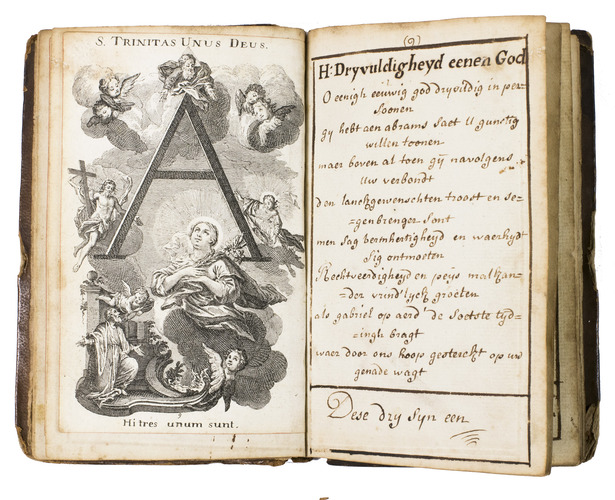 S. TRINITAS UNUS DEUS.
Hi tres unum sunt.
(9)
H: Dryvuldigheyd eenen God
O eenigh eeuwig god dryvuldig in per-
soonen
gij hebt aen abrams saet U gunstig
willen toonen
maer boven al toen gij navolgens
Uw verbondt
den lanckgewenschten troost en se-
-genbrenger sont
men sag bermhertigheyd en waerheyt
sig ontmoeten
Rechtveerdigheyd en peijs malkan-
-der vrind'lyck groeten
als gabriel op aerd' de soetste tijd-
-ingh bragt
waer door ons hoop gesterckt op uw
genade wagt
Dese dry syn een